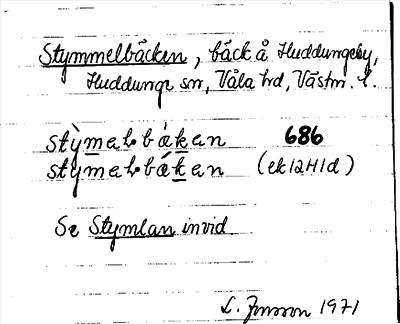 Stymmelbäcken, bäck å Huddungeby,
Huddunge sn, Våla hd, Västm. l.
stỳmalbákan 686
stýmalbákan (ek 12H1d)
Se Stymlan invid
L. Jonsson 1971